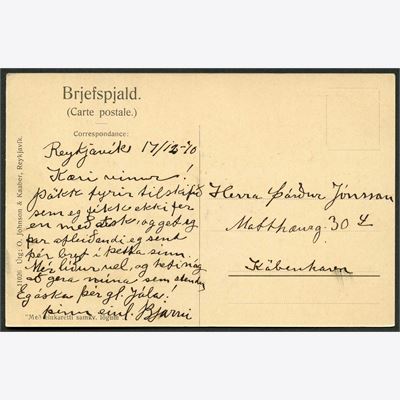 Brjefspjald.
(Carte postale.)
Correspondance:
Reykjavík 17/12-10
Kæri vinur!
Þökk fyrir tilskrifið
sem eg fékk ekki fyr
en með og get eg
þar afleiðandi eg sent
þér bref i þetta sinn.
Mér líður vel, og hefi nóg
að gera núna sem
Eg óska þér gl. Jóla!
þinn einl. Bjarni
Herra Þórður Jónsson
Matthæusg. 30
København
11026 Útg: O. Johnson & Kaaber, Reykjavík.
"Með einkarétti samkv. lögum"